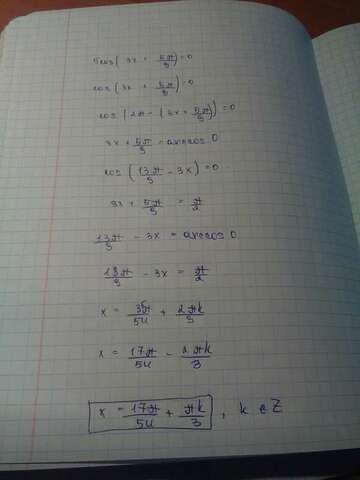 5cos(3x + 5π/9)=0
cos(3x + 5π/9)=0
cos(2π - (3x + 5π/9))=0
3x + 5π/9 = arccos 0
cos(13π/9 - 3x)=0
3x + 5π/9 = π/2
13π/9 - 3x = arccos 0
13π/9 - 3x = π/2
x = 35/54 + 2πk/3
x = 17π/54 - 2πk/3
x = 17π/54 + πk/3, k ∈ Z